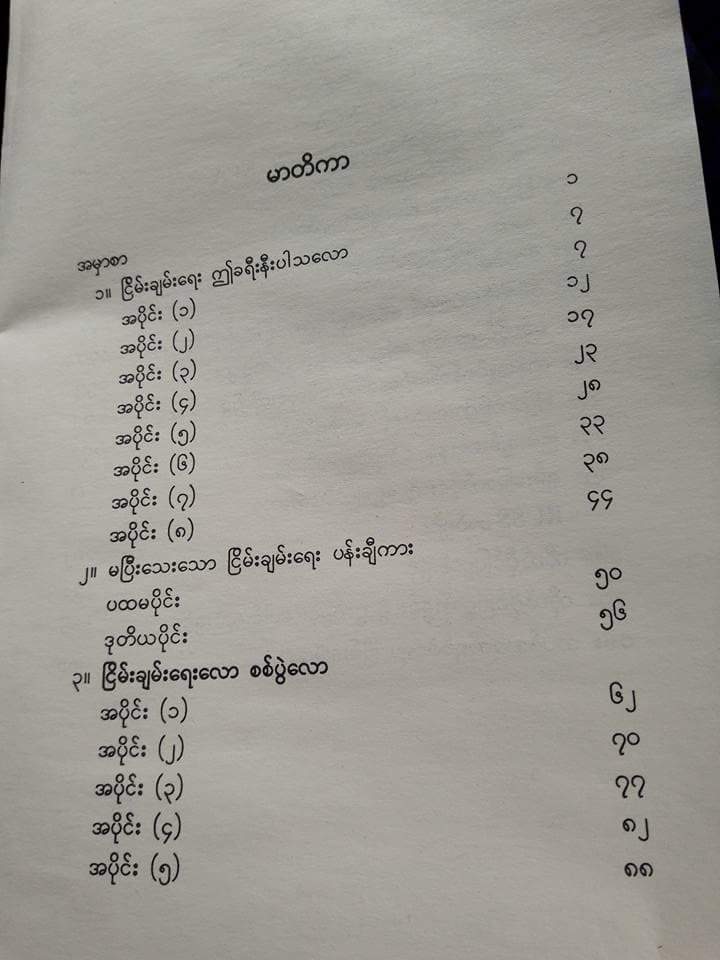 မာတိကာ
အမှာစာ ၁
၁။ ငြိမ်းချမ်းရေး ဤခရီးနီးပါသလော ၇
အပိုင်း (၁) ၇
အပိုင်း (၂) ၁၂
အပိုင်း (၃) ၁၇
အပိုင်း (၄) ၂၃
အပိုင်း (၅) ၂၈
အပိုင်း (၆) ၃၃
အပိုင်း (၇) ၃၈
အပိုင်း (၈) ၄၄
၂။ မပြီးသေးသော ငြိမ်းချမ်းရေး ပန်းချီကား
ပထမပိုင်း ၅၀
ဒုတိယပိုင်း ၅၆
၃။ ငြိမ်းချမ်းရေးလော စစ်ပွဲလော
အပိုင်း (၁) ၆၂
အပိုင်း (၂) ၇၀
အပိုင်း (၃) ၇၇
အပိုင်း (၄) ၈၂
အပိုင်း (၅) ၈၈